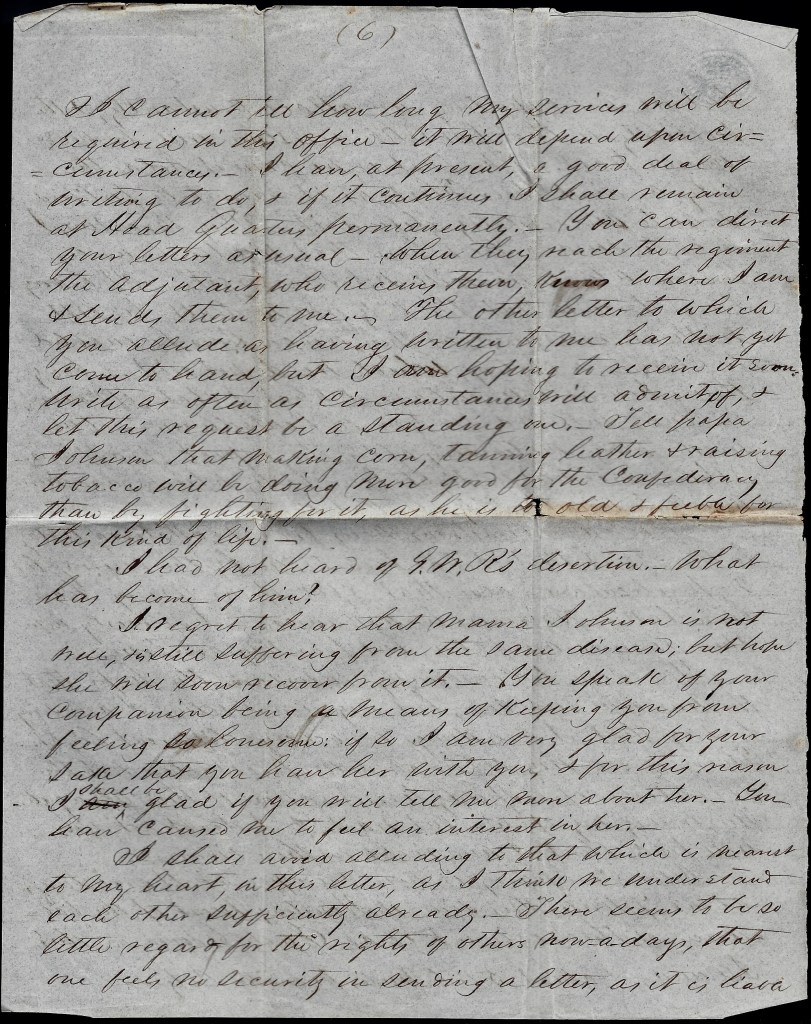 (6)
I cannot tell how long my services will be
required in this office — it will depend upon cir=
=cumstances. — I have, at present, a good deal of
writing to do, & if it continues I shall remain
at Head Quaters permanently. — You can direct
your letters as usual — When they reach the regiment
the Adjutant, who receives them, knows where I am
& sends them to me. — The other letter to which
you allude as having written to me has not yet
come to hand, but I am hoping to receive it soon.
Write as often as circumstances will admit of, &
let this request be a standing one. — Tell papa
Johnson that making corn, tanning leather & raising
tobacco will be doing more good for the Confederacy
than by fighting for it, as he is to old & feeble for
this kind of life. —
I had not heard of G. W. R's desertion. — What
has become of him?
I regret to hear that Mama Johnson is not
well, & is still suffering from the same disease; but hope
she will soon recover from it. — You speak of your
companion being a means of keeping you from
feeling so lonesome: if so I am very glad for your
sake that you have her with you, & for this reason
shall be
I am glad if you will tell me more about her. — You
have caused me to feel an interest in her. —
I shall avoid alluding to that which is nearest
to my heart, in this letter, as I think we understand
each other sufficiently already. — There seems to be so
little regard for the rights of others now-a-days, that
one feels no security in sending a letter, as it is liable